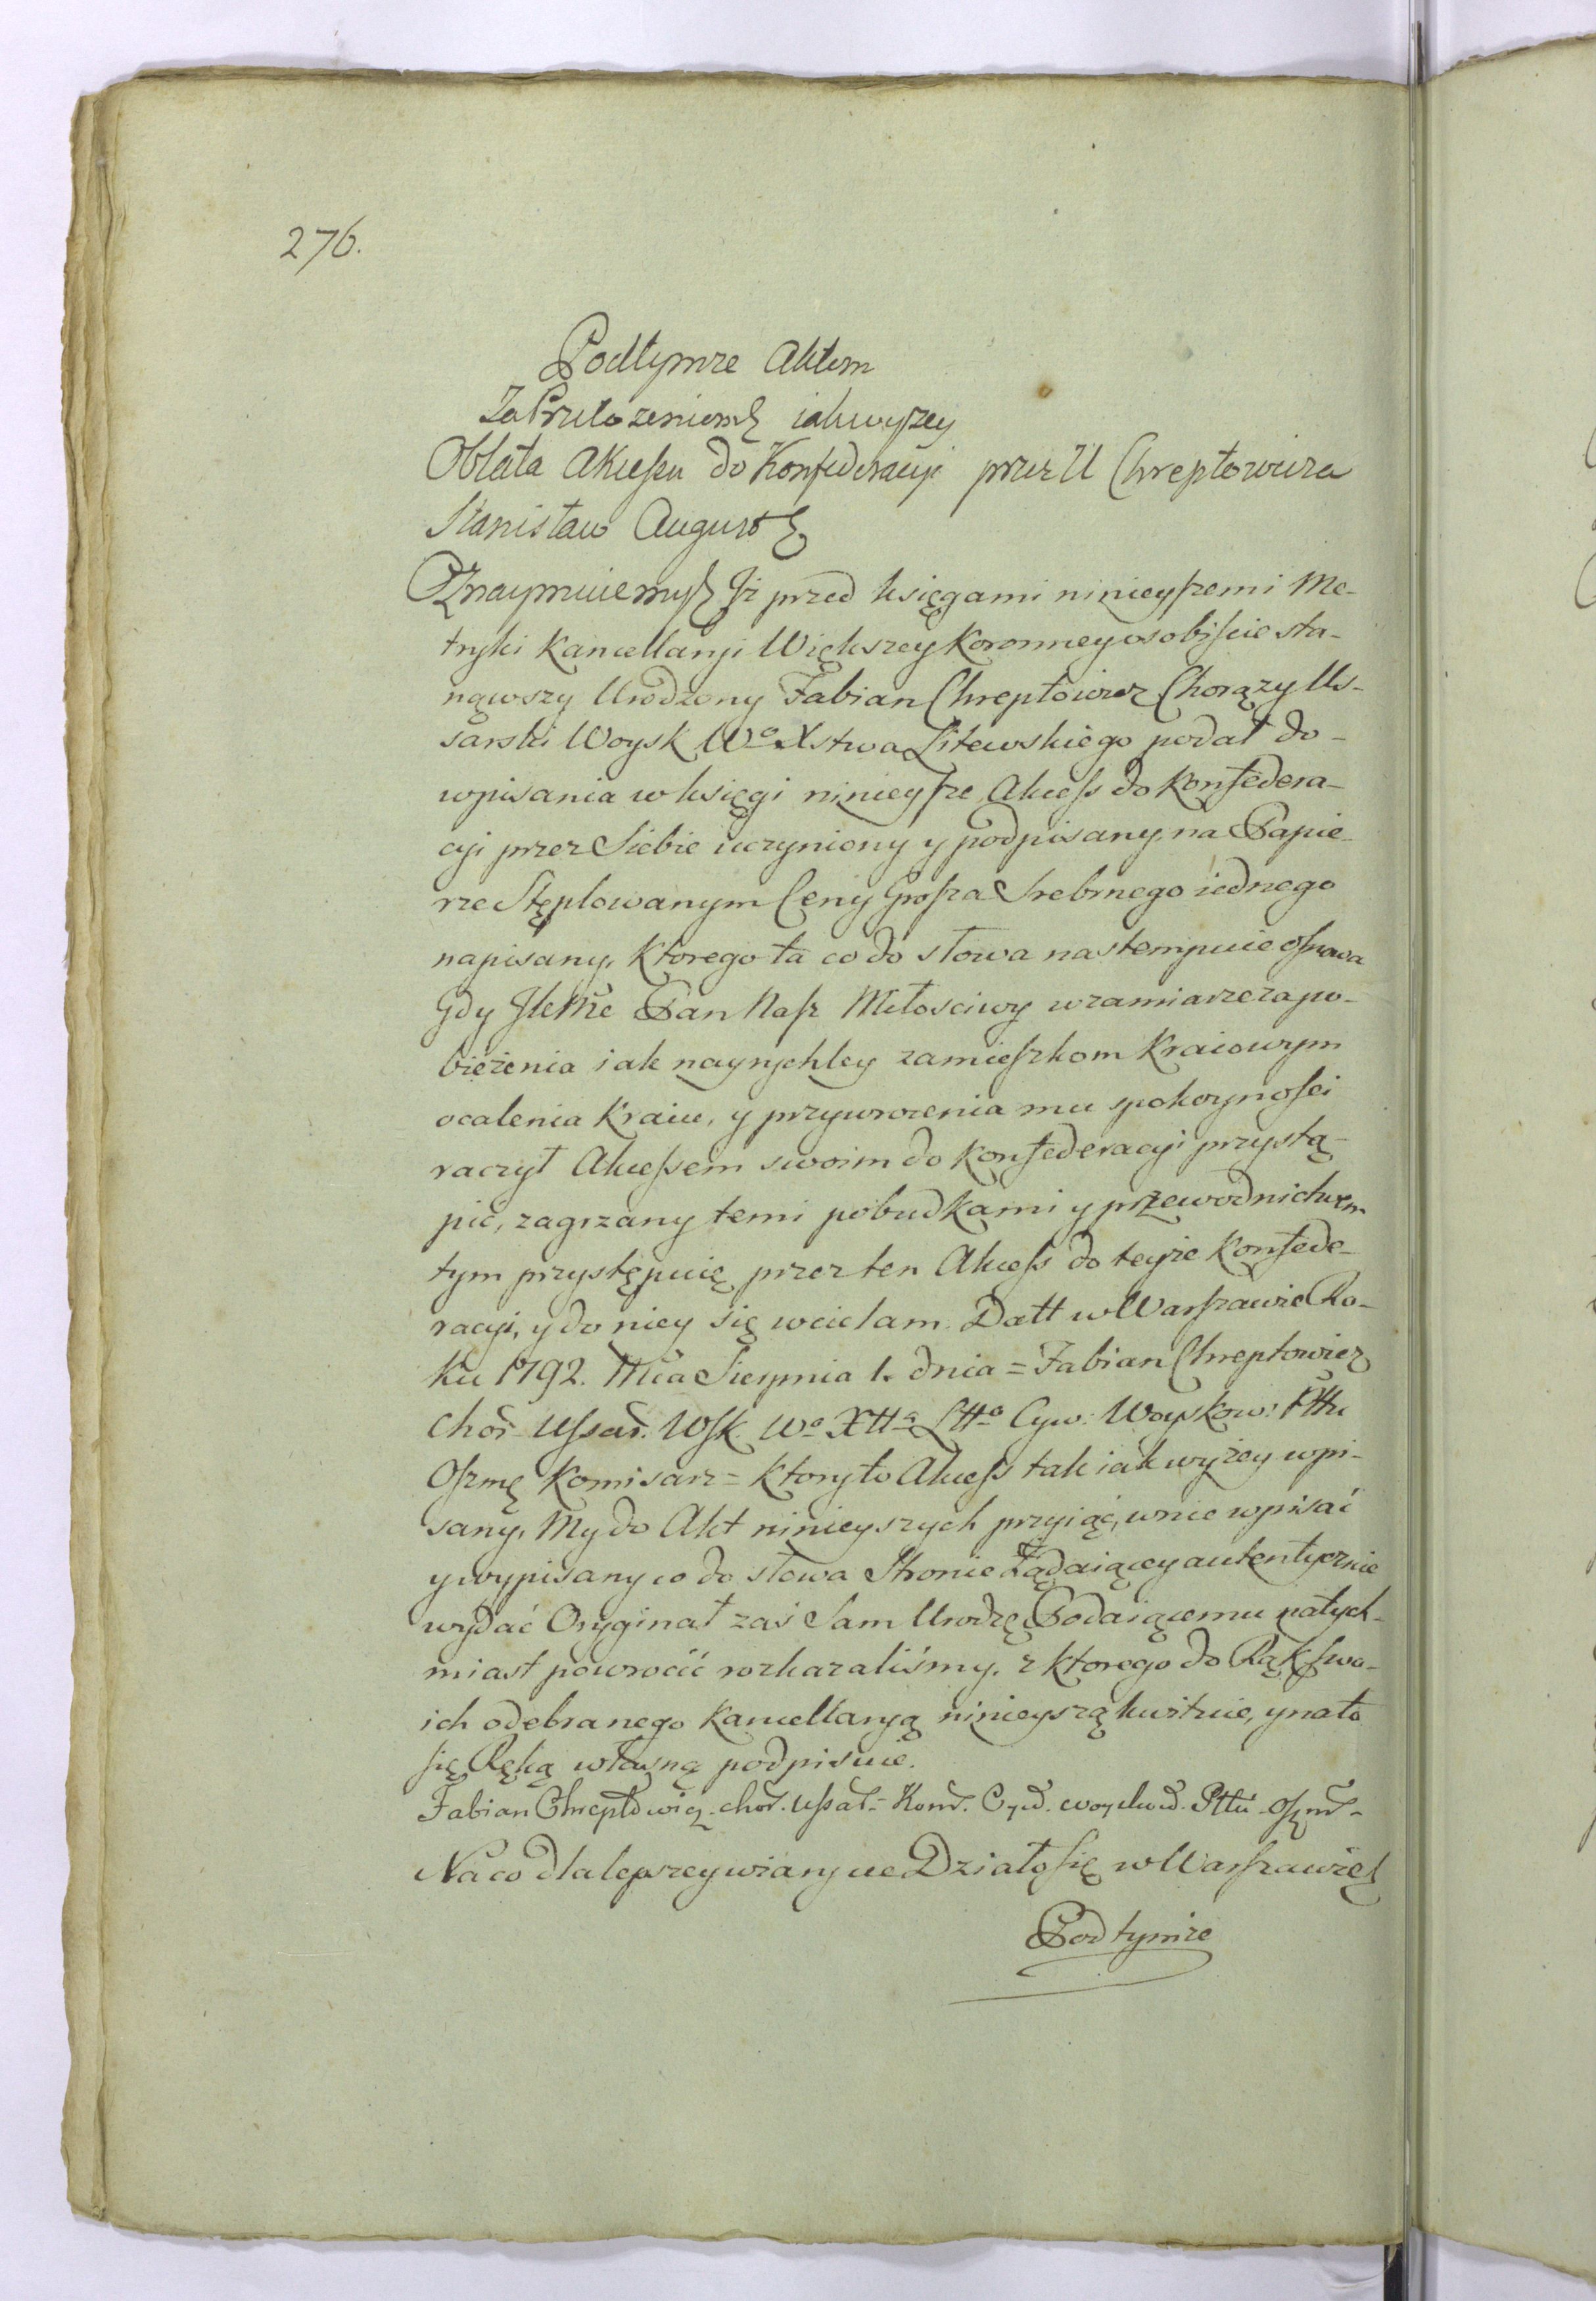 276.
Podtymże Aktem
Za Przełożeniem iakwyżey
Oblata Akcessu do Konfederacyi przez U Chreptowicza
Stanisław August
Oznaymuiemy Iż przed księgami ninieyszemi Me-
tryki Kancellaryi Większey Koronney osobiście sta-
nąwszy Urodzony Fabian Chreptowicz Chorąży Us-
sarski Woysk Wo Xstwa Litewskiego podał do-
wpisania w księgi ninieysze Akcess do Konfedera-
cyi przez Siebie uczyniony y podpisany na Papie-
rze Stęplowanym Ceny Grosza Srebrnego iednego
napisany, Ktorego ta co do słowa nastempuie osnowa
Gdy JKMć Pan Nasz Miłosciwy wzamiarze zapo-
bieżenia iak nayrychley zamieszkom Kraiowym
ocalenia Kraiu, y przywrocenia mu spokoynosci
raczył Akcessem swoim do Konfederacyi przystą-
pić, zagrzany temi pobudkami y przewodnictwem
tym przystępuię przez ten Akcess do teyże Konfede-
racyi, y do niey się wcielam. Datt w Warszawie Ro-
ku 1792. Mca Sierpnia 1. dnia = Fabian Chreptowicz
Chor Ussar. Wsk. Wo XttA Ltto Cyw: Woyskow: Pttu
Oszmę Komisarz = Ktoryto Akcess tak iak wyżey wpi-
sany, My do Akt ninieyszych przyiąć, w nie wpisać
y wypisany co do słowa Stronie Żądaiącey autentycznie
wydać Oryginał zaś Sam Urodzę Podaiącemu natych-
miast powrocić rozkazaliśmy. z Ktorego do Rąk swo-
ich odebranego Kancellaryą ninieyszą kwituie, y na to
się Ręką własną podpisuie.
Fabian Chreptowicz chor. ussar. Kom. Cyw. woyskow. Pttu Oszm.
Na co dla lepszey wiary etc Działo się w Warszawie
Podtymże